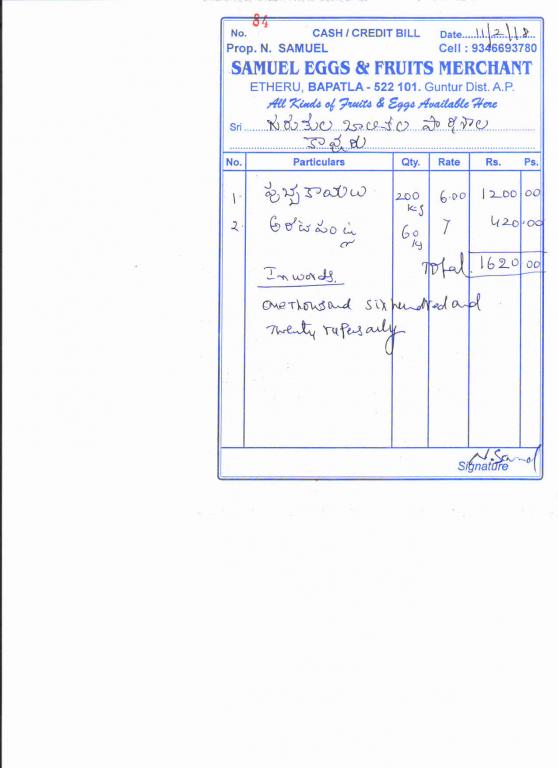 84
No. CASH / CREDIT BILL Date...11/2/18
Prop. N. SAMUEL Cell : 9346693780
SAMUEL EGGS & FRUITS MERCHANT
ETHERU, BAPATLA - 522 101. Guntur Dist. A.P.
All Kinds of Fruits & Eggs Available Here
Sri గురుకుల బాలికల పాఠశాల
No. Particulars Qty. Rate Rs. Ps.
1. పుచ్చకాయలు 200 kg 6.00 1200 00
2. అరటిపండ్లు 60 kg 7 420 00
Total 1620 00
In words.
one thousand six hundred and
Twenty rupes only
Signature